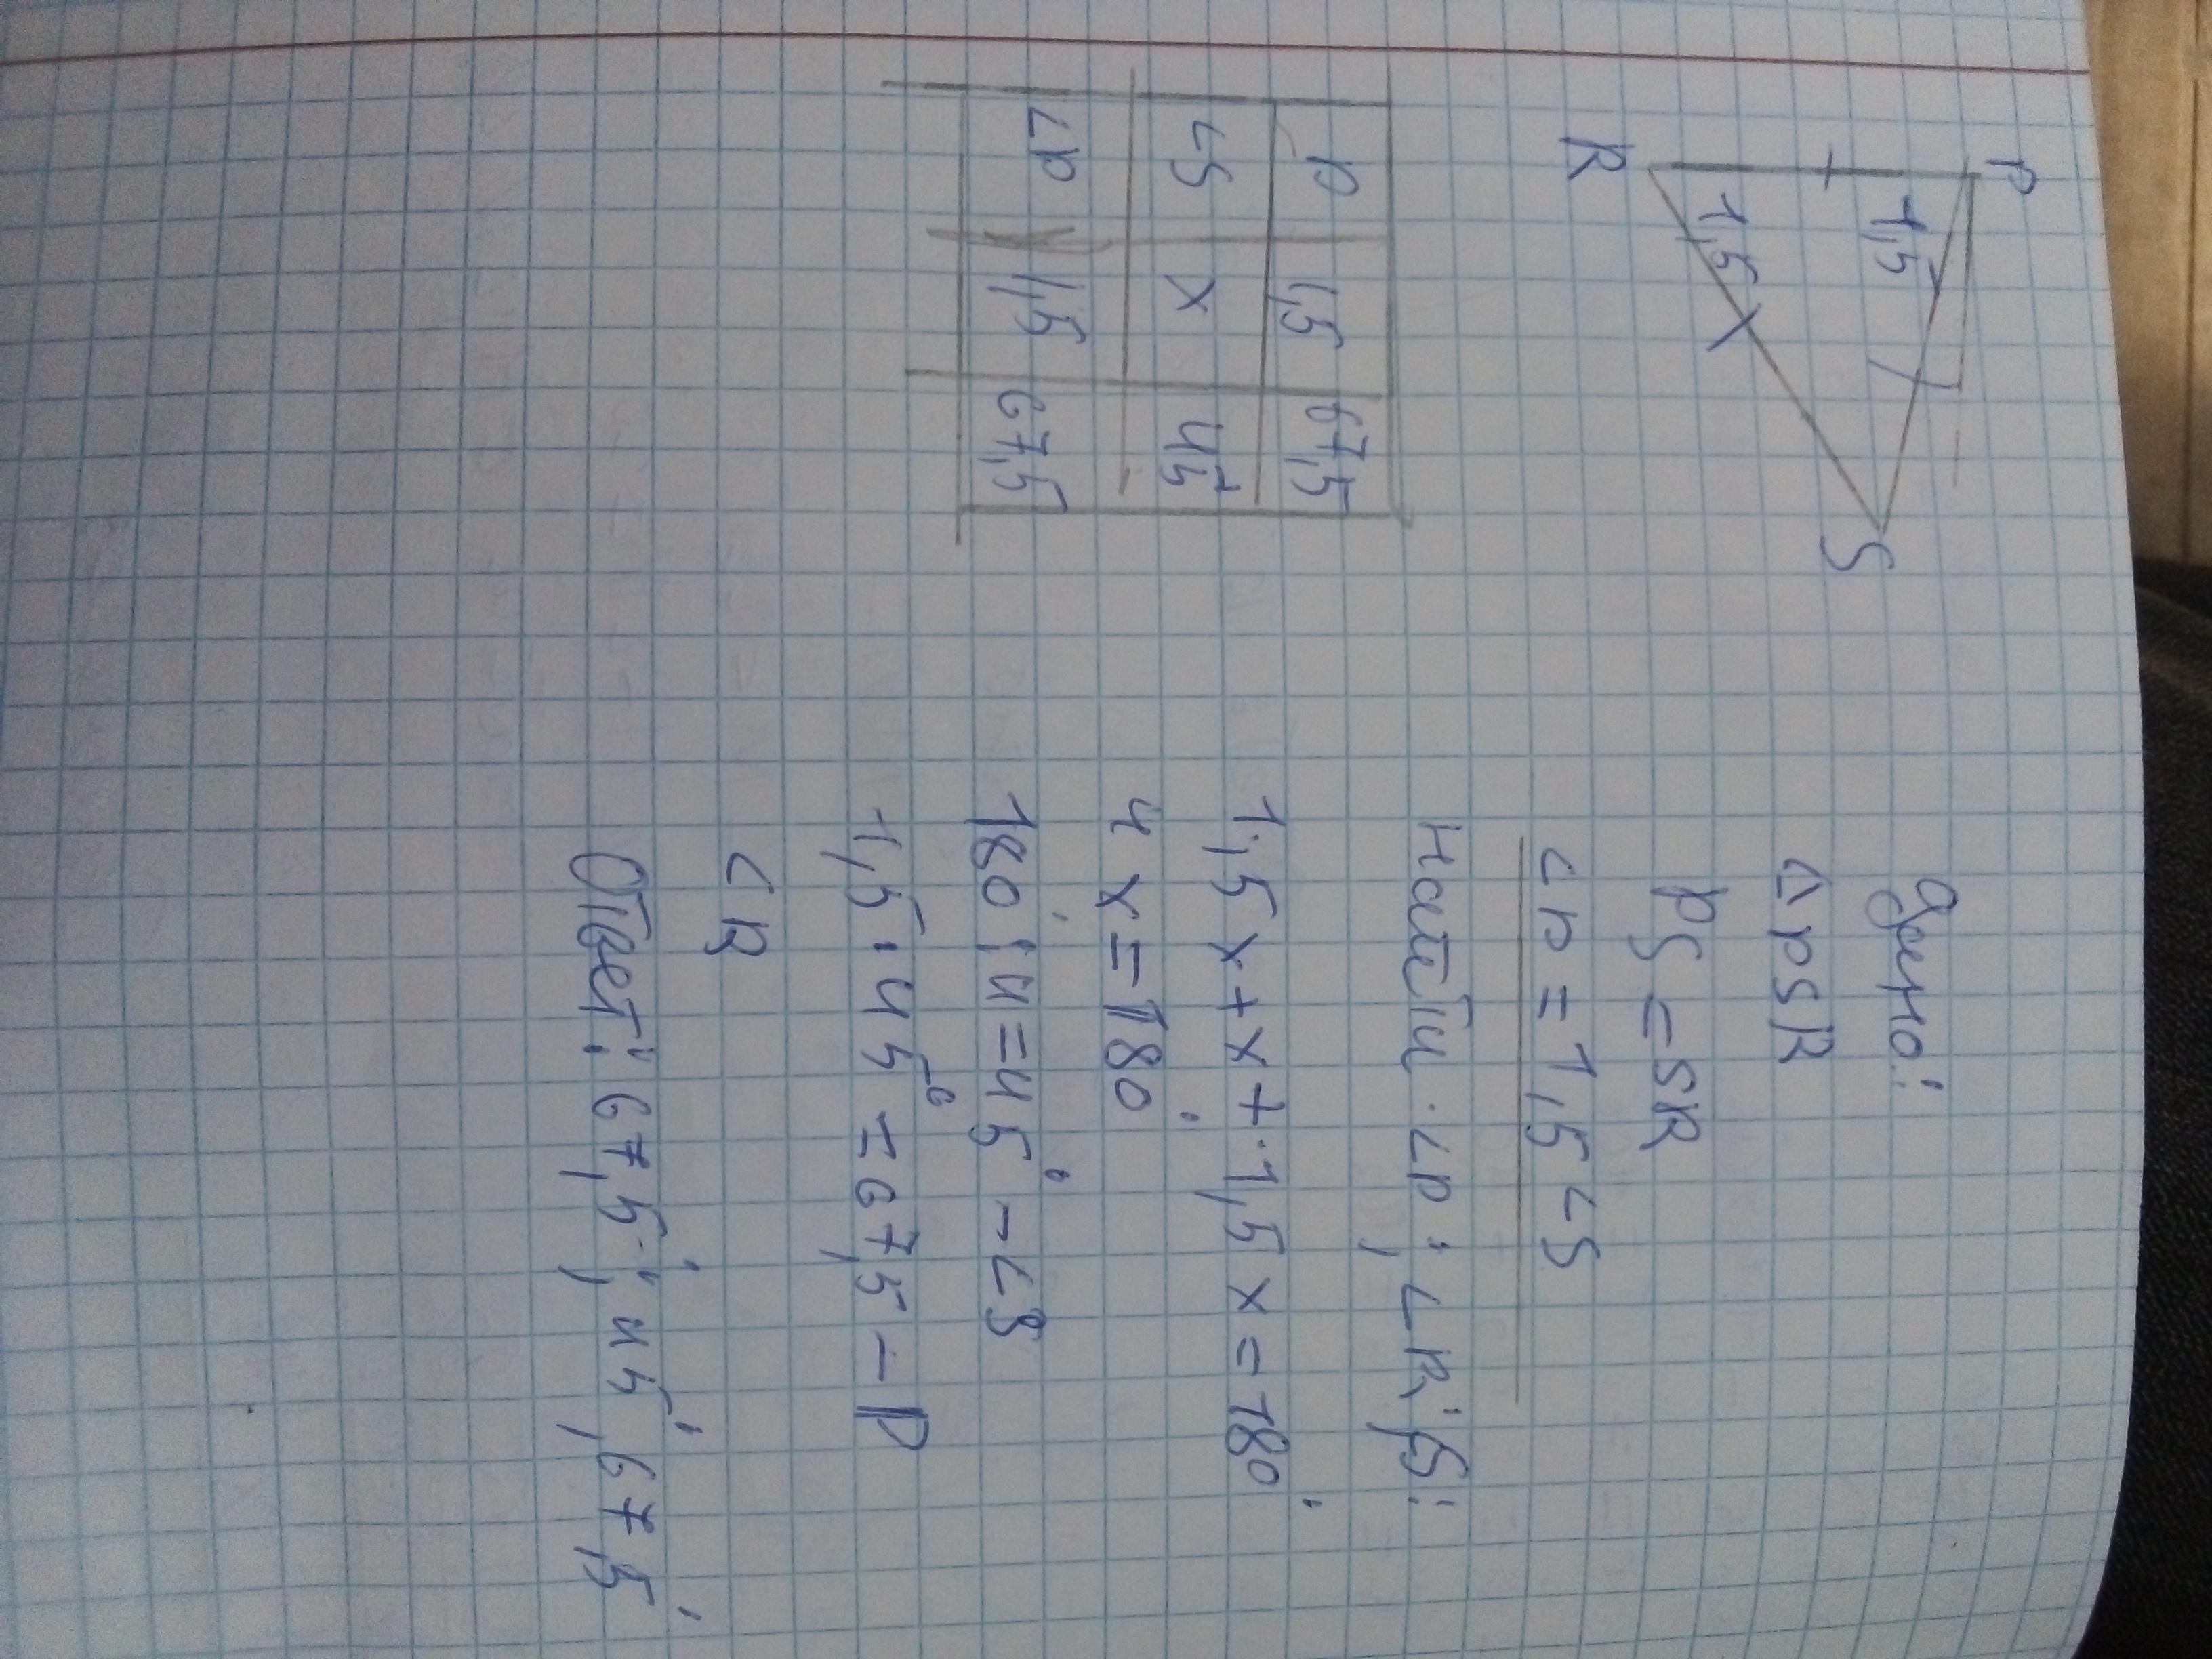 P
1,5
1,5 X
R
S
P 1,5 67,5
∠S x 45°
∠P 1,5 67,5
Дано:
△PSR
PS = SR
∠P = 1,5 ∠S
Найти ∠P; ∠R; S;
1,5x + x + 1,5x = 180°
4x = 180°
180° : 4 = 45° – ∠S
1,5 · 45° = 67,5 – P
∠R
Ответ: 67,5°; 45°, 67,5°